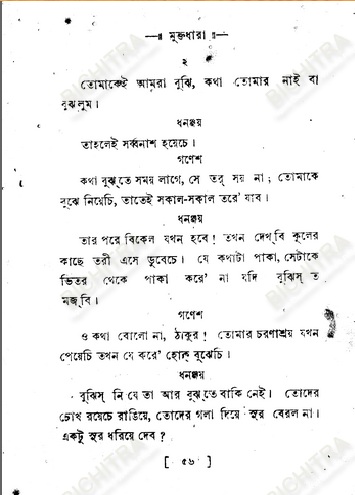 —॥ মুক্তধারা ॥—
২
তোমাকেই আমরা বুঝি, কথা তোমার নাই বা
বুঝলুম।
ধনঞ্জয়
তাহলেই সর্ব্বনাশ হয়েচে।
গণেশ
কথা বুঝ্‌তে সময় লাগে, সে তর্‌ সয় না; তোমাকে
বুঝে নিয়েচি, তাতেই সকাল-সকাল তরে’ যাব।
ধনঞ্জয়
তার পরে বিকেল যখন হবে! তখন দেখ্‌বি কূলের
কাছে তরী এসে ডুবেচে। যে কথাটা পাকা, সেটাকে
ভিতর থেকে পাকা করে’ না যদি বুঝিস্‌ ত
মজ্‌বি।
গণেশ
ও কথা বোলো না, ঠাকুর! তোমার চরণাশ্রয় যখন
পেয়েচি তখন যে করে’ হোক্‌ বুঝেচি।
ধনঞ্জয়
বুঝিস্‌ নি যে তা আর বুঝ্‌তে বাকি নেই। তোদের
চোখ রয়েচে রাঙিয়ে, তোদের গলা দিয়ে সুর বেরল না।
একটু সুর ধরিয়ে দেব?
[ ৫৬ ]
BICHITRA
BICHITRA
BICHITRA
BICHITRA